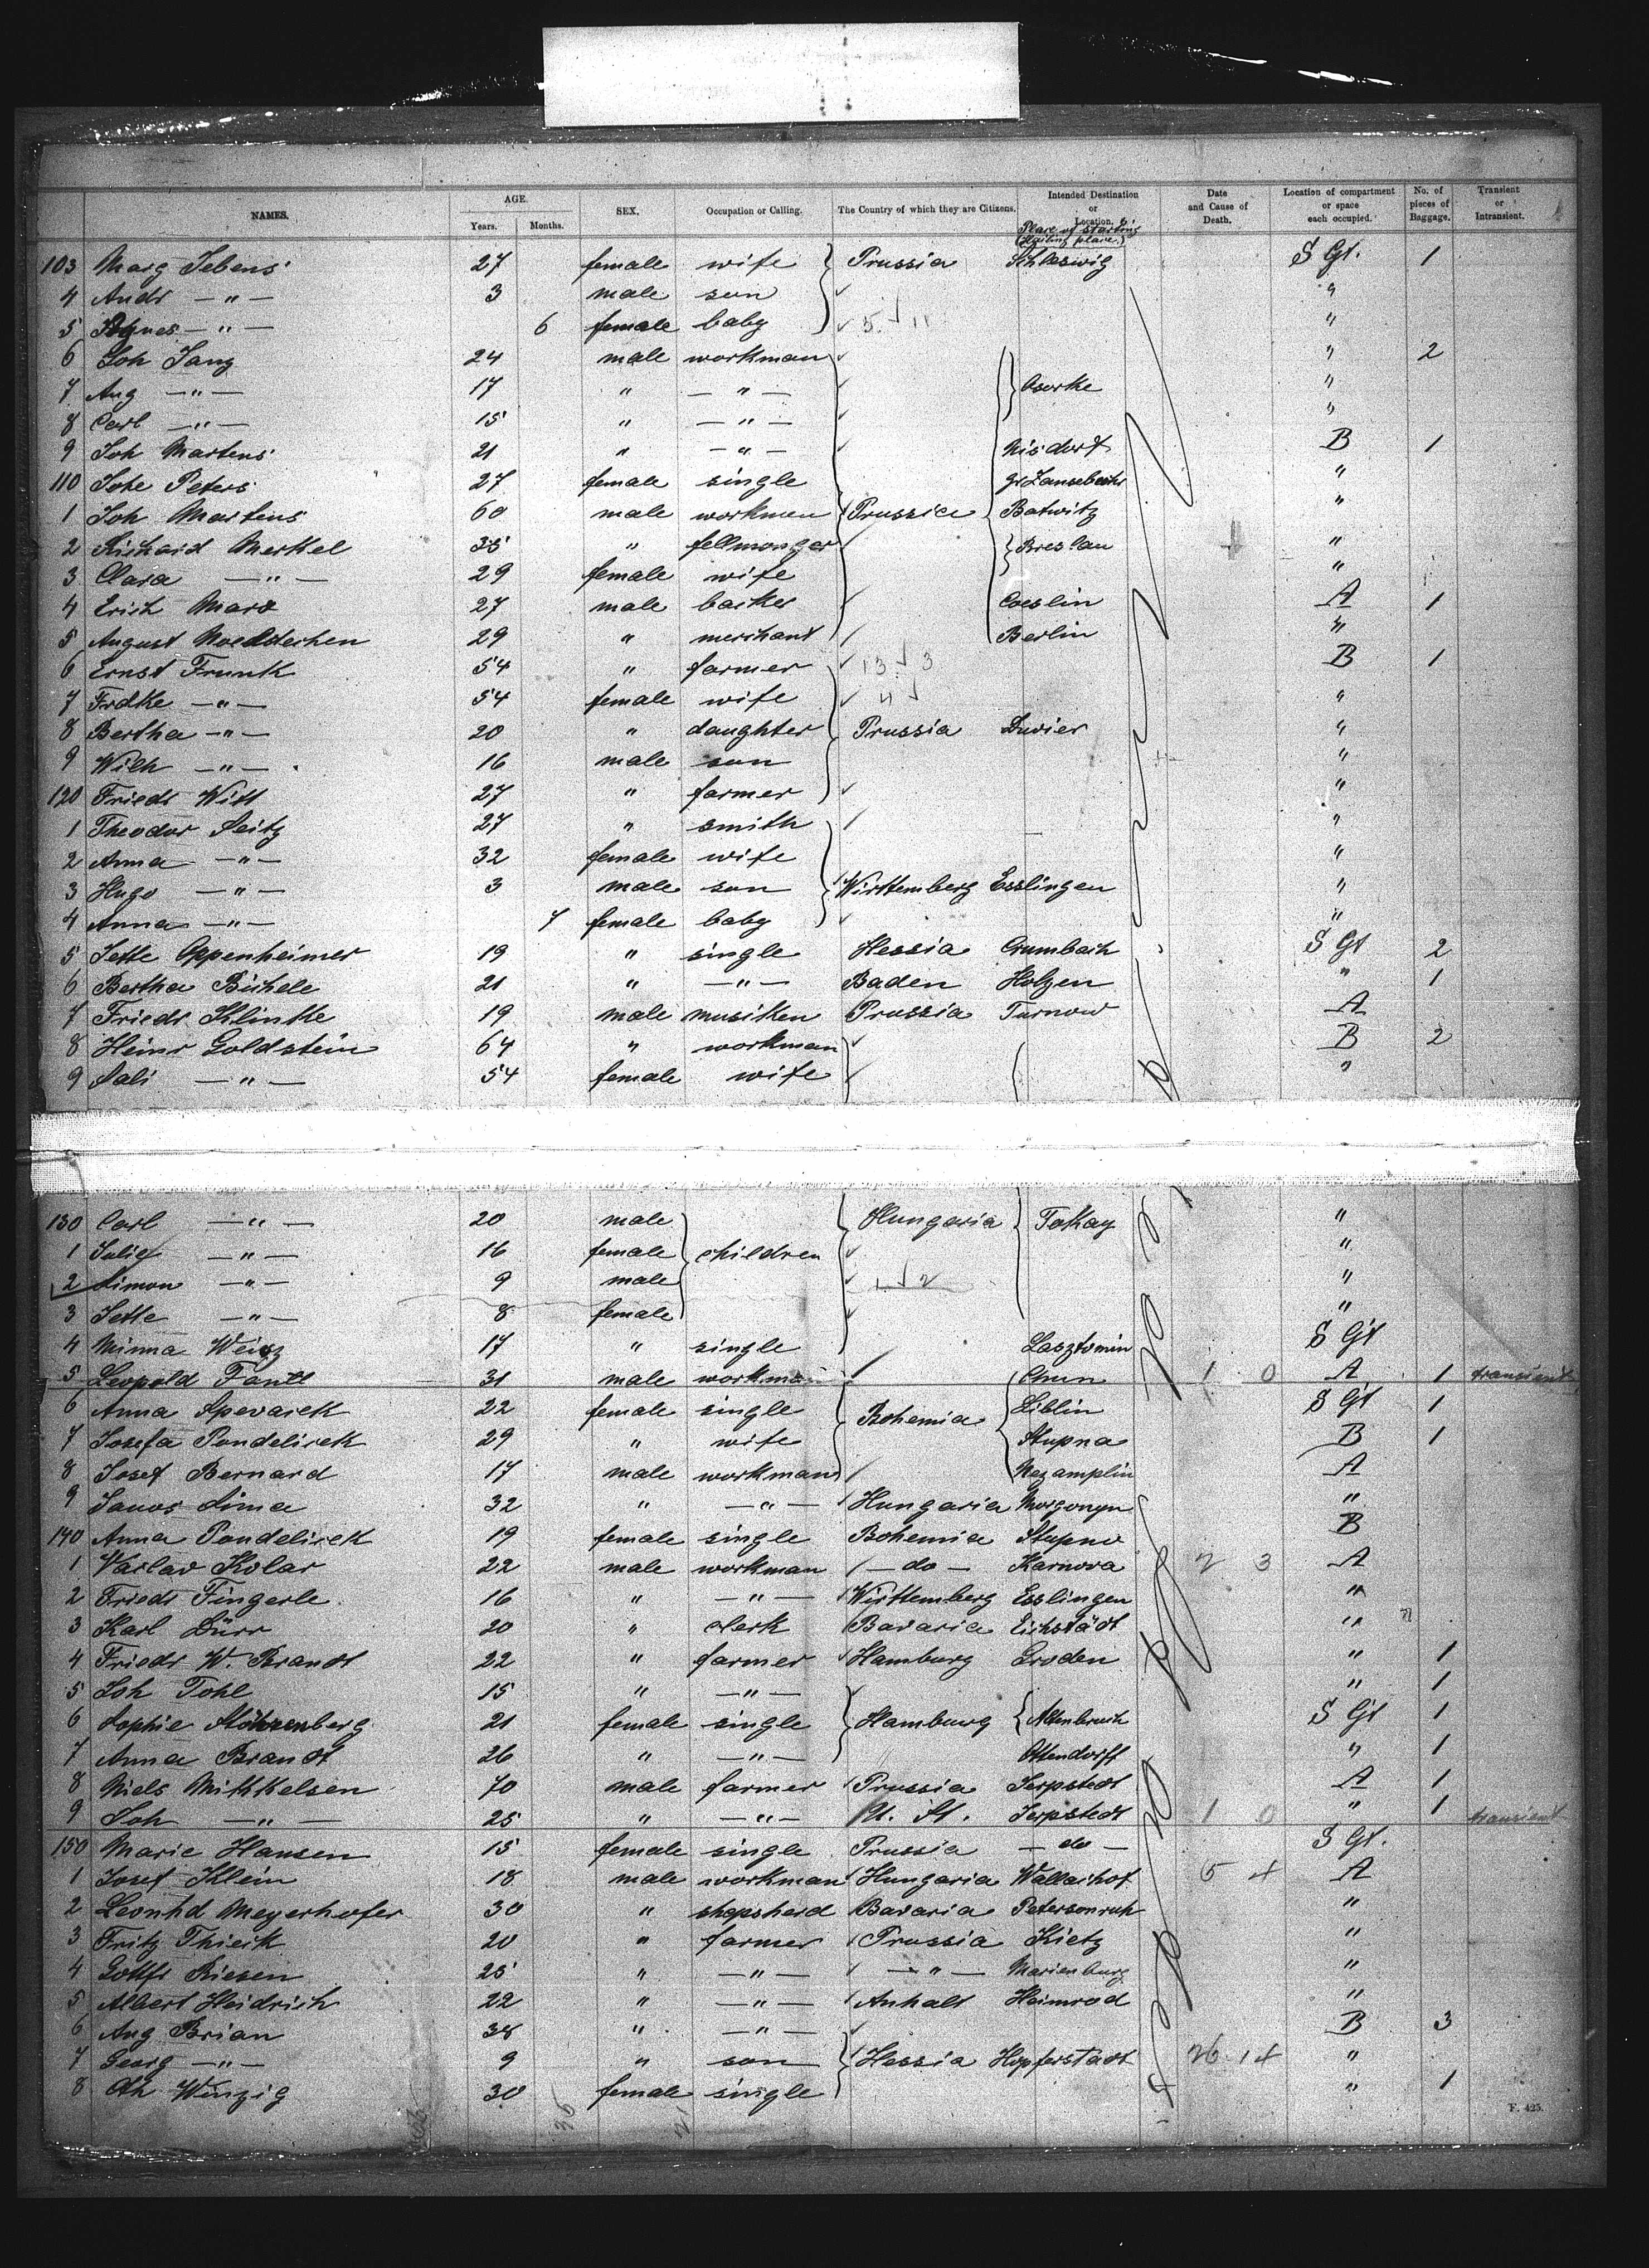 NAMES. AGE. Years. Months. SEX. Occupation or Calling. The Country of which they are Citizens. Intended Destination or Location. Date and Cause of Death. Location of compartment or space each occupied. No. of pieces of Baggage. Transient or Intransient.
Place of starting
103 Marg Jebens 27 female wife Prussia Schleswig S Gt. 1
4 Andr — " — 3 male son "
5 Agnes — " — 6 female baby "
6 Joh Jang 24 male workman " 2
7 Aug — " — 17 " — " — "
8 Carl — " — 15 " — " — "
9 Joh Martens 21 " — " — Nisdorf B 1
110 Johe Peters 27 female single "
1 Joh Martens 60 male workman Prussia Batwitz "
2 Richard Merkel 35 " fellmonger Breslau "
3 Clara — " — 29 female wife "
4 Erich Marx 27 male backer Coeslin A 1
5 August Noeldechen 29 " merchant Berlin "
6 Ernst Frunk 54 " farmer B 1
7 Frdke — " — 54 female wife "
8 Bertha — " — 20 " daughter Prussia Duvier "
9 Wilh — " — 16 male son "
120 Friedr Witt 27 " farmer "
1 Theodor Seitz 27 " smith "
2 Anna — " — 32 female wife "
3 Hugo — " — 3 male son Württemberg Esslingen "
4 Anna — " — 7 female baby "
5 Jette Oppenheimer 19 " single Hessia Crumbach S Gt 2
6 Bertha Büchele 21 " — " — Baden Holzen " 1
7 Friedr Klinke 19 male musiken Prussia Turnow A
8 Heinr Goldstein 64 " workman B 2
9 Sali — " — 54 female wife "
130 Carl — " — 20 male children Hungaria Tokay "
1 Julie — " — 16 female "
2 Simon — " — 9 male "
3 Jette — " — 8 female "
4 Minna Weisz 17 " single Lasztomin S Gt
5 Leopold Fantl 31 male workman 1 0 A 1 transient
6 Anna Spevacek 22 female single Bohemia Liblin S Gt 1
7 Josefa Pondelicek 29 " wife Stupna B 1
8 Josef Bernard 17 male workman Nezamplin A
9 Janos Sima 32 " — " — Hungaria "
140 Anna Pondelicek 19 female single Bohemia Stupno B
1 Vaclav Kolar 22 male workman — do — Karnova 2 3 A
2 Friedr Fingerle 16 " — " — Württemberg Esslingen "
3 Karl Dürr 20 " clerk Bavaria Eichstädt "
4 Friedr W. Brandt 22 " farmer Hamburg Groden " 1
5 Joh Tohl 15 " — " — " 1
6 Sophie Stöhrenberg 21 female single Hamburg Altenbruch S Gt 1
7 Anna Brandt 26 " — " — Ottendorff " 1
8 Niels Mikkelsen 70 male farmer Prussia Jerpstedt A 1
9 Joh — " — 25 " — " — U. St. Jerpstedt 1 0 " 1 transient
150 Marie Hansen 15 female single Prussia — do — S Gt.
1 Josef Klein 18 male workman Hungaria Wallachof 5 4 A
2 Leonhd Meyerhofer 30 " shepsherd Bavaria Petersonruh "
3 Fritz Thieck 20 " farmer Prussia Kietz "
4 Gottfr Riesen 25 " — " — — " — Marienburg "
5 Albert Heidrich 22 " — " — Anhalt Heimrod "
6 Aug Brian 38 " — " — B 3
7 Georg — " — 9 " son Hessia Hopferstadt 26 14 "
8 Ch Winzig 30 female single " 1
F. 425.